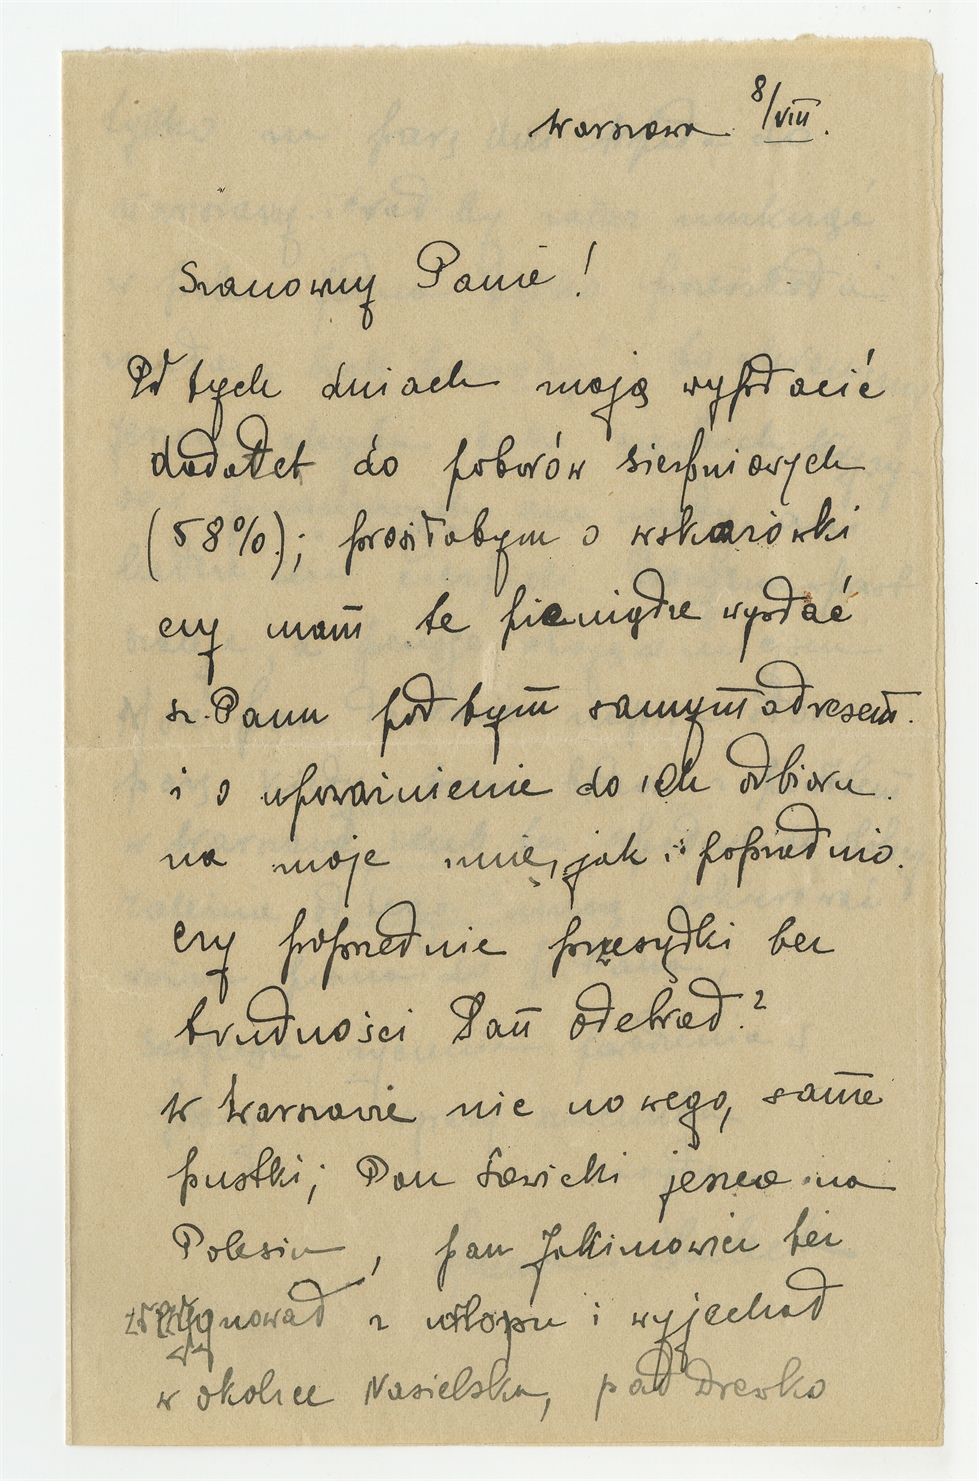 Warszawa 8/VIII.
Szanowny Panie!
W tych dniach mają wypłacić
dodatek do poborów sierpniowych
(58%); prosiłabym o wskazówki
czy mam te pieniądze wysłać
Sz. Panu pod tym samym adresem.
i o upoważnienie do ich odbioru
na moje imię, jak i poprzednio.
Czy poprzednie przesyłki bez
trudności Pan odebrał?
W Warszawie nic nowego, same
pustki; Pan Sawicki jeszcze na
Polesiu, pan Jakimowicz też
zrezygnował z urlopu i wyjechał
w okolice Nasielska, pod Drewko